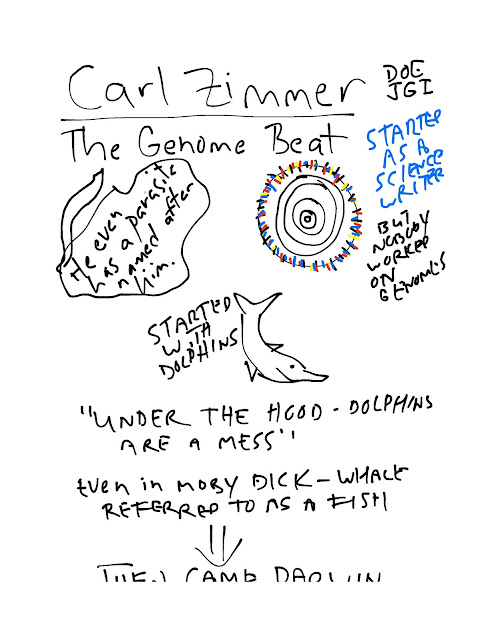 Carl Zimmer
DOE
JGI
The Genome Beat
STARTED
AS A
SCIENCE
WRITER
BUT
NOBODY
WORKED
ON
GENOMES
He even
has a parasite
named after
him.
STARTED
WITH
DOLPHINS
"UNDER THE HOOD - DOLPHINS
ARE A MESS"
Even in MOBY DICK - WHALE
REFERRED TO AS A FISH
THEN CAME DARWIN